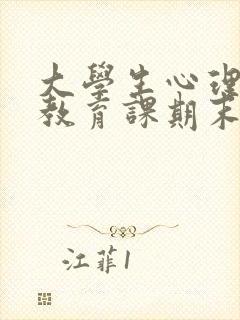 大學生心理
教育課期末
江菲1